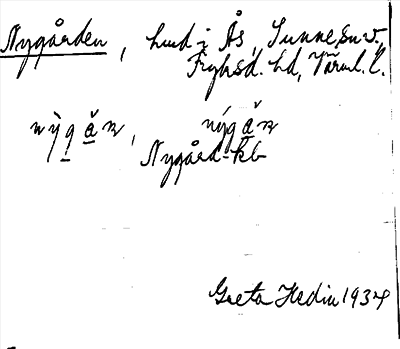 Nygården, hmd i Ås, Sunne sn v.,
Fryksd. hd, Värml. l.
Nygård-kb
Greta Hedin 1934